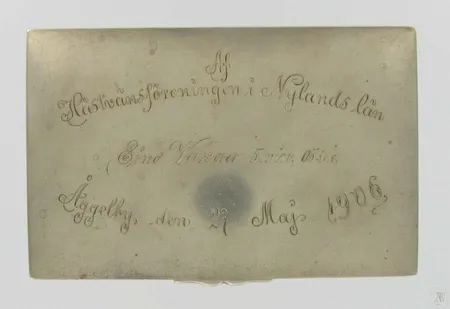 Af
Hästvänsföreningen i Nylands län
Eino
Åggelby, den 29 Maj 1906